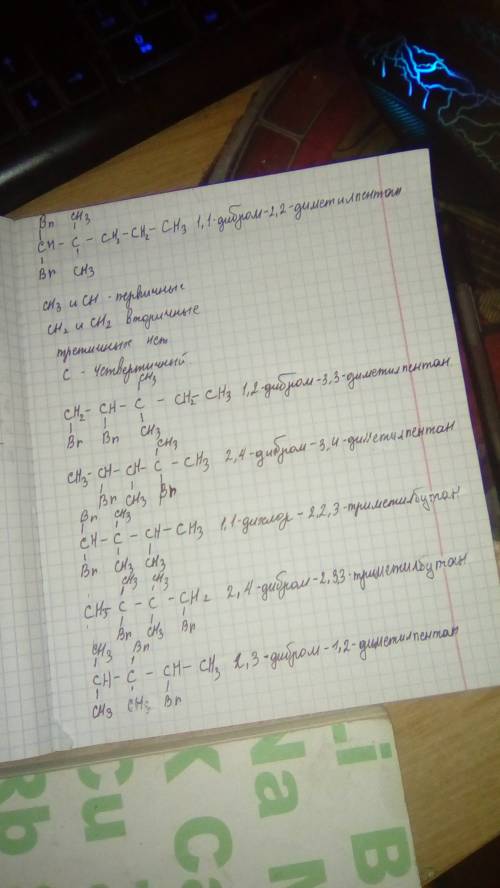 Br CH3
CH - C - CH2 - CH2 - CH3 1,1-дибром-2,2-диметилпентан
Br CH3
CH3 и CH - первичные
CH2 и CH2 вторичные
третичных нет
C - четвертичный
CH3
CH2 - CH - C - CH2 - CH3 1,2-дибром-3,3-диметилпентан.
Br Br CH3
CH3
CH3 - CH - CH - C - CH3 2,4-дибром-3,4-диметилпентан
Br CH3 Br
Br CH3
CH - C - CH - CH3 1,1-дихлор-2,2,3-триметилбутан
Br CH3 CH3
CH3 CH3
CH3 - C - C - CH2 2,4-дибром-2,3,3-триметилбутан
Br CH3 Br
CH3 Br
CH - C - CH - CH3 2,3-дибром-1,2-диметилпентан
CH3 CH3 Br
Li
Na
K
Cu
Rb
Ca
B
M
A